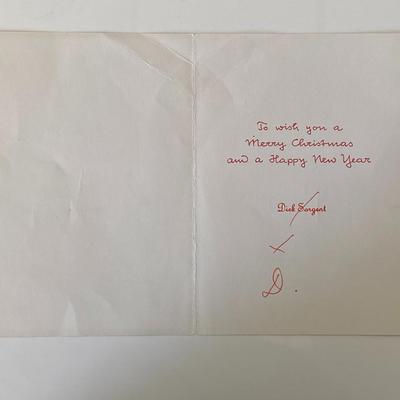 To wish you a
Merry Christmas
and a Happy New Year
Dick Sargent
X
D.